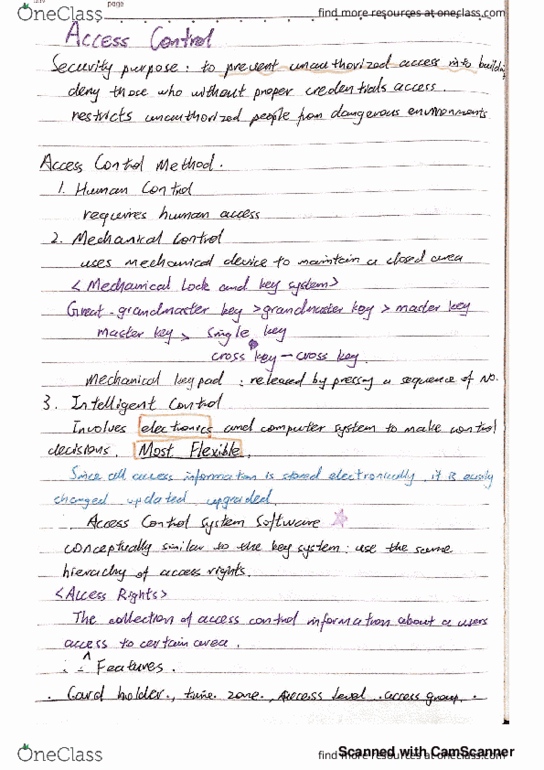 OneClass
page
find more resources at oneclass.com
Access Control
Security purpose : to prevent unauthorized access into building
deny those who without proper credentials access.
restricts unauthorized people from dangerous environments
Access Control Method.
1. Human Control
requires human access
2. Mechanical Control
uses mechanical device to maintain a closed area
< Mechanical Lock and key system>
Great-grandmaster key > grandmaster key > master key
master key > single key
cross key - cross key.
Mechanical keypad : released by pressing a sequence of No.
3. Intelligent Control
Involves electronics and computer system to make control
decisions. Most Flexible.
Since all access information is stored electronically, it is easily
changed updated upgraded.
Access Control System Software
conceptually similar to the key system : use the same
hierarchy of access rights.
<Access Rights>
The collection of access control information about a users
access to certain area.
Features.
. Card holder., time zone., Access level .access group.
OneClass
find more resources at oneclass.com
Scanned with CamScanner